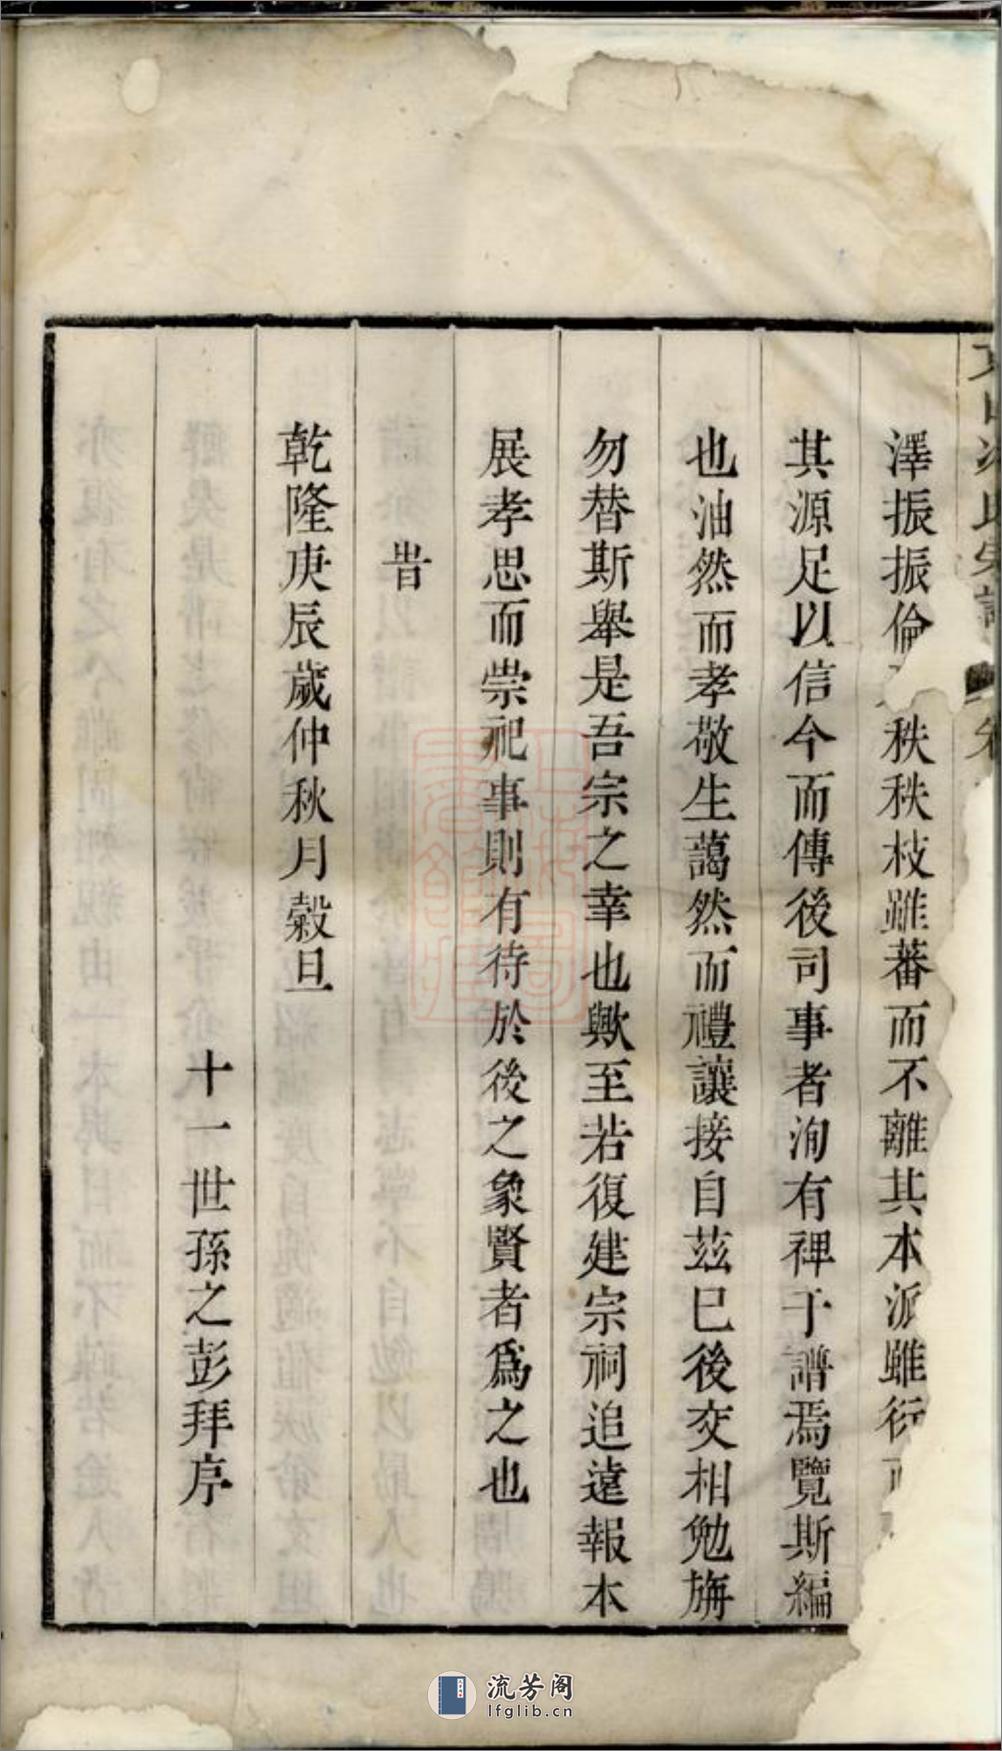 澤振振倫秩秩枝雖蕃而不離其本派雖衍
其源足以信今而傳後司事者洵有裨于譜焉覽斯編
也油然而孝敬生藹然而禮讓接自茲已後交相勉旃
勿替斯舉是吾宗之幸也歟至若復建宗祠追遠報本
展孝思而崇祀事則有待於後之象賢者爲之也
旹
乾隆庚辰歲仲秋月穀旦
十一世孫之彭拜序
流芳阁
lfglib.cn